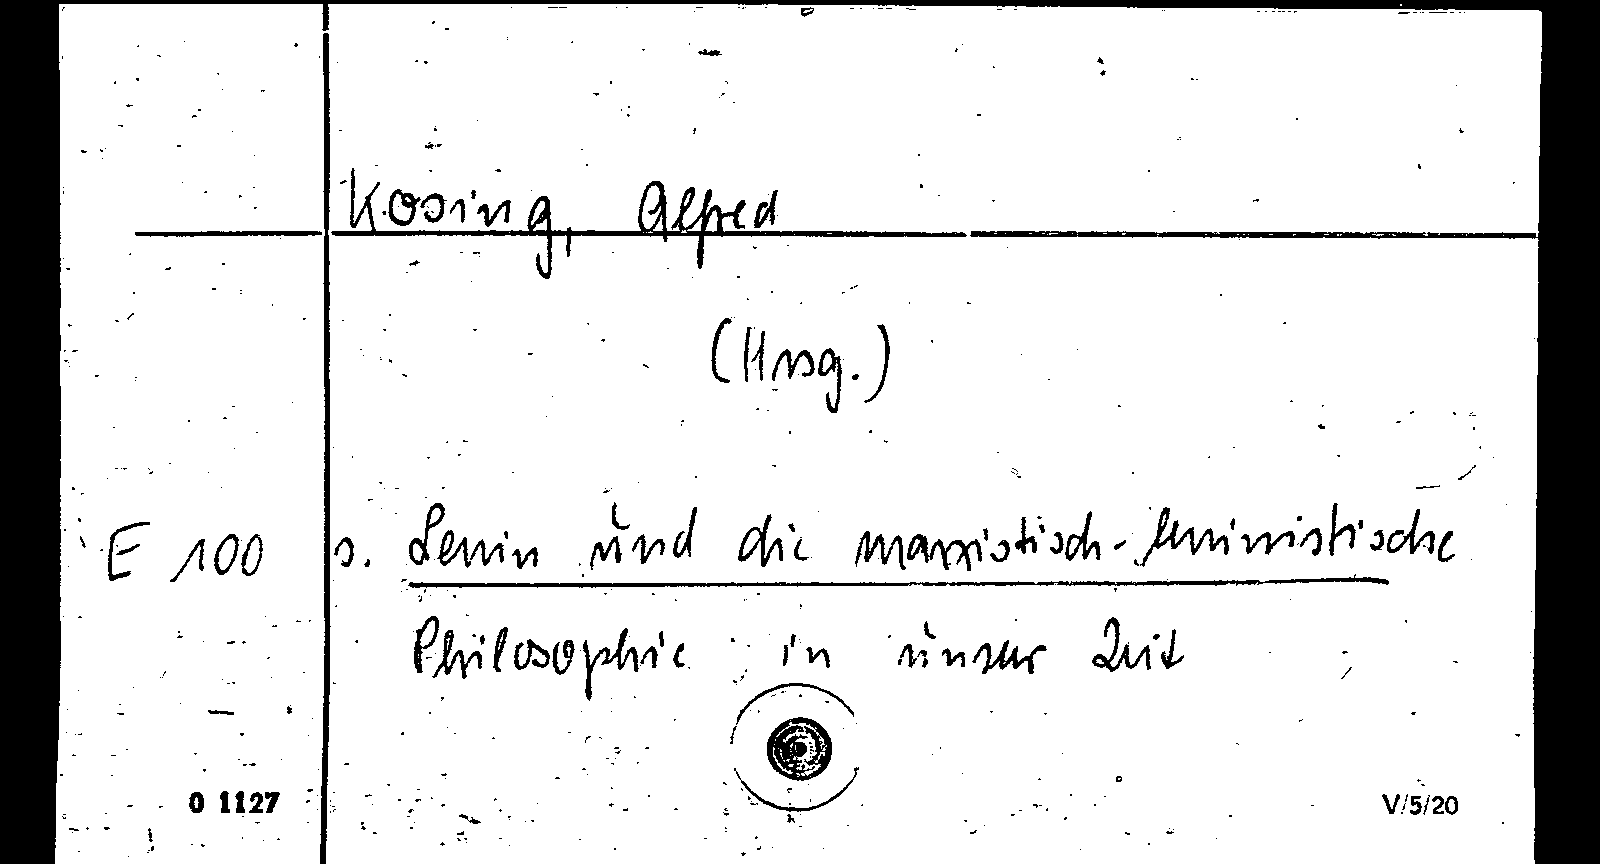 Kosing, Alfred
(Hrsg.)
E 100 s. Lenin und die marxistisch-leninistische
Philosophie in unser Zeit
0 1127
V/5/20